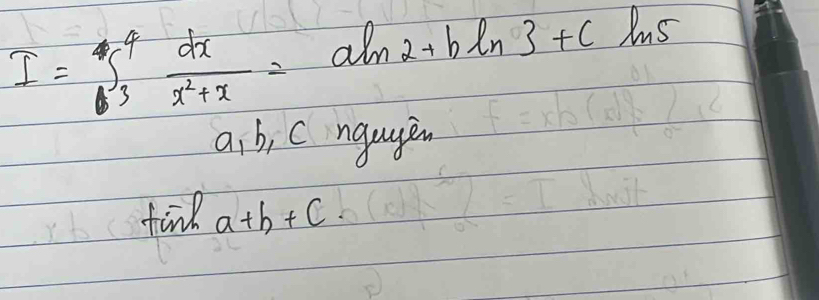 I = ∫₃⁴ dx / (x² + x) = aln2 + bln3 + c ln5
a, b, c nguyên
tính a + b + c.